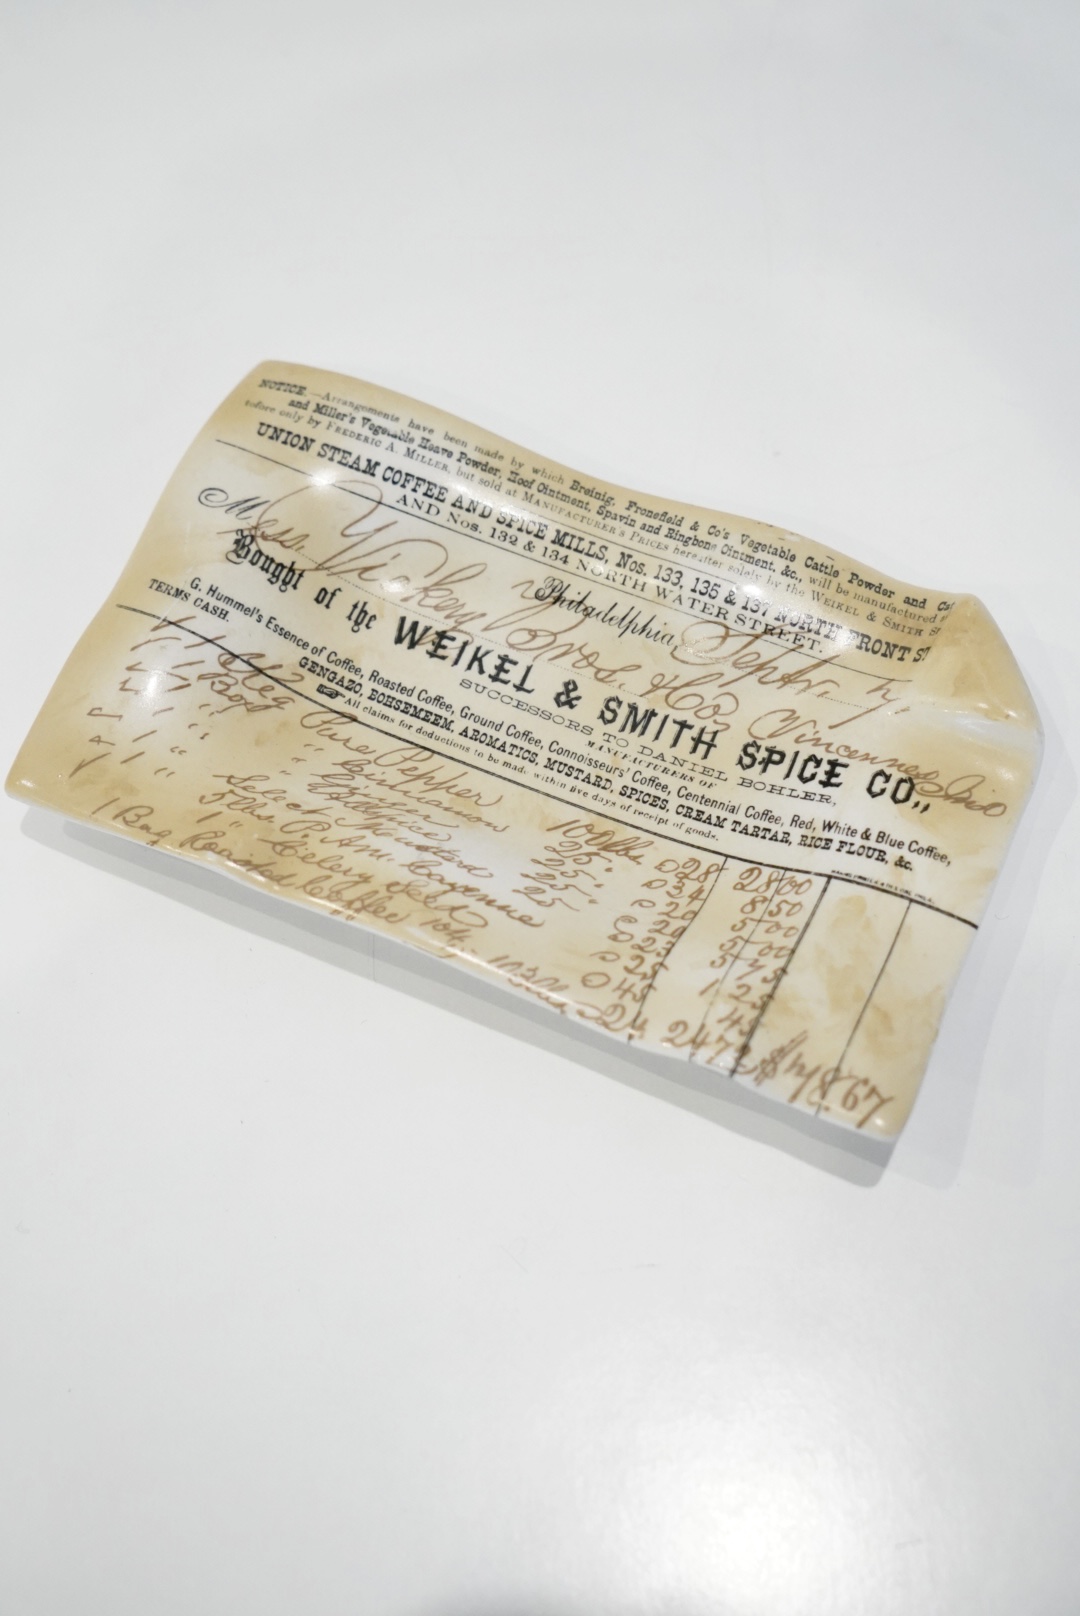 NOTICE.—Arrangements have been made by which Breinig, Fronefield & Co's Vegetable Cattle Powder and
and Miller's Vegetable Heave Powder, Hoof Ointment, Spavin and Ringbone Ointment, &c., will be manufactured
tofore only by FREDERIC A. MILLER, but sold at MANUFACTURER'S PRICES hereafter solely by the WEIKEL & SMITH
UNION STEAM COFFEE AND SPICE MILLS, Nos. 133, 135 & 137 NORTH FRONT ST
AND Nos. 132 & 134 NORTH WATER STREET.
Philadelphia, Septr.
Mess. Vickery Bros. & Co Vincennes
Bought of the WEIKEL & SMITH SPICE CO.,
SUCCESSORS TO DANIEL BOHLER,
MANUFACTURERS OF
G. Hummel's Essence of Coffee, Roasted Coffee, Ground Coffee, Connoisseurs' Coffee, Centennial Coffee, Red, White & Blue Coffee,
TERMS CASH. GENGAZO, BOHSEMEEM, AROMATICS, MUSTARD, SPICES, CREAM TARTAR, RICE FLOUR, &c.
All claims for deductions to be made within five days of receipt of goods.
1 Keg Pure Pepper 100lbs 28 28 00
1 Box " Cinnamon 25 " 34 8 50
1 " " Allspice 25 " 20 5 00
1 " Select Mustard 25 20 5 00
23 5 75
5 lbs. P. Am. Cayenne 25 1 25
1 " Celery Seed 45 45
1 Bag Roasted Coffee 24 24 72
67